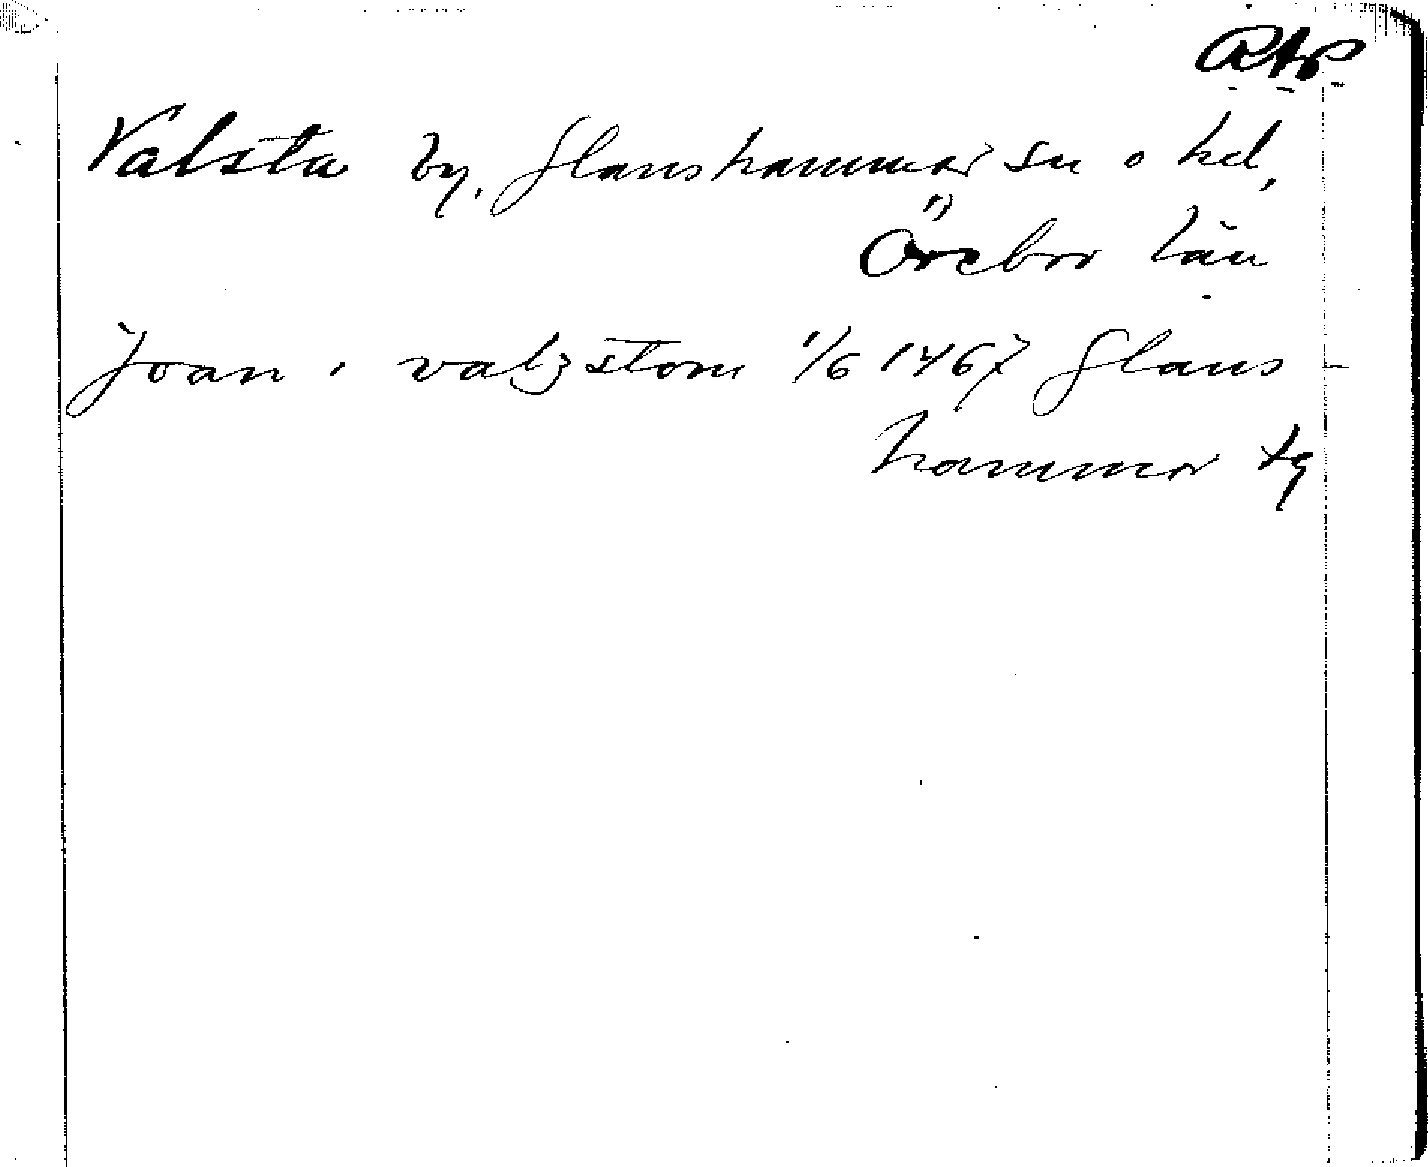 RAP
Valsta by, Glanshammar sn o hd,
Örebro län
Joan i valzstom 1/6 1467 Glans-
hammar tg